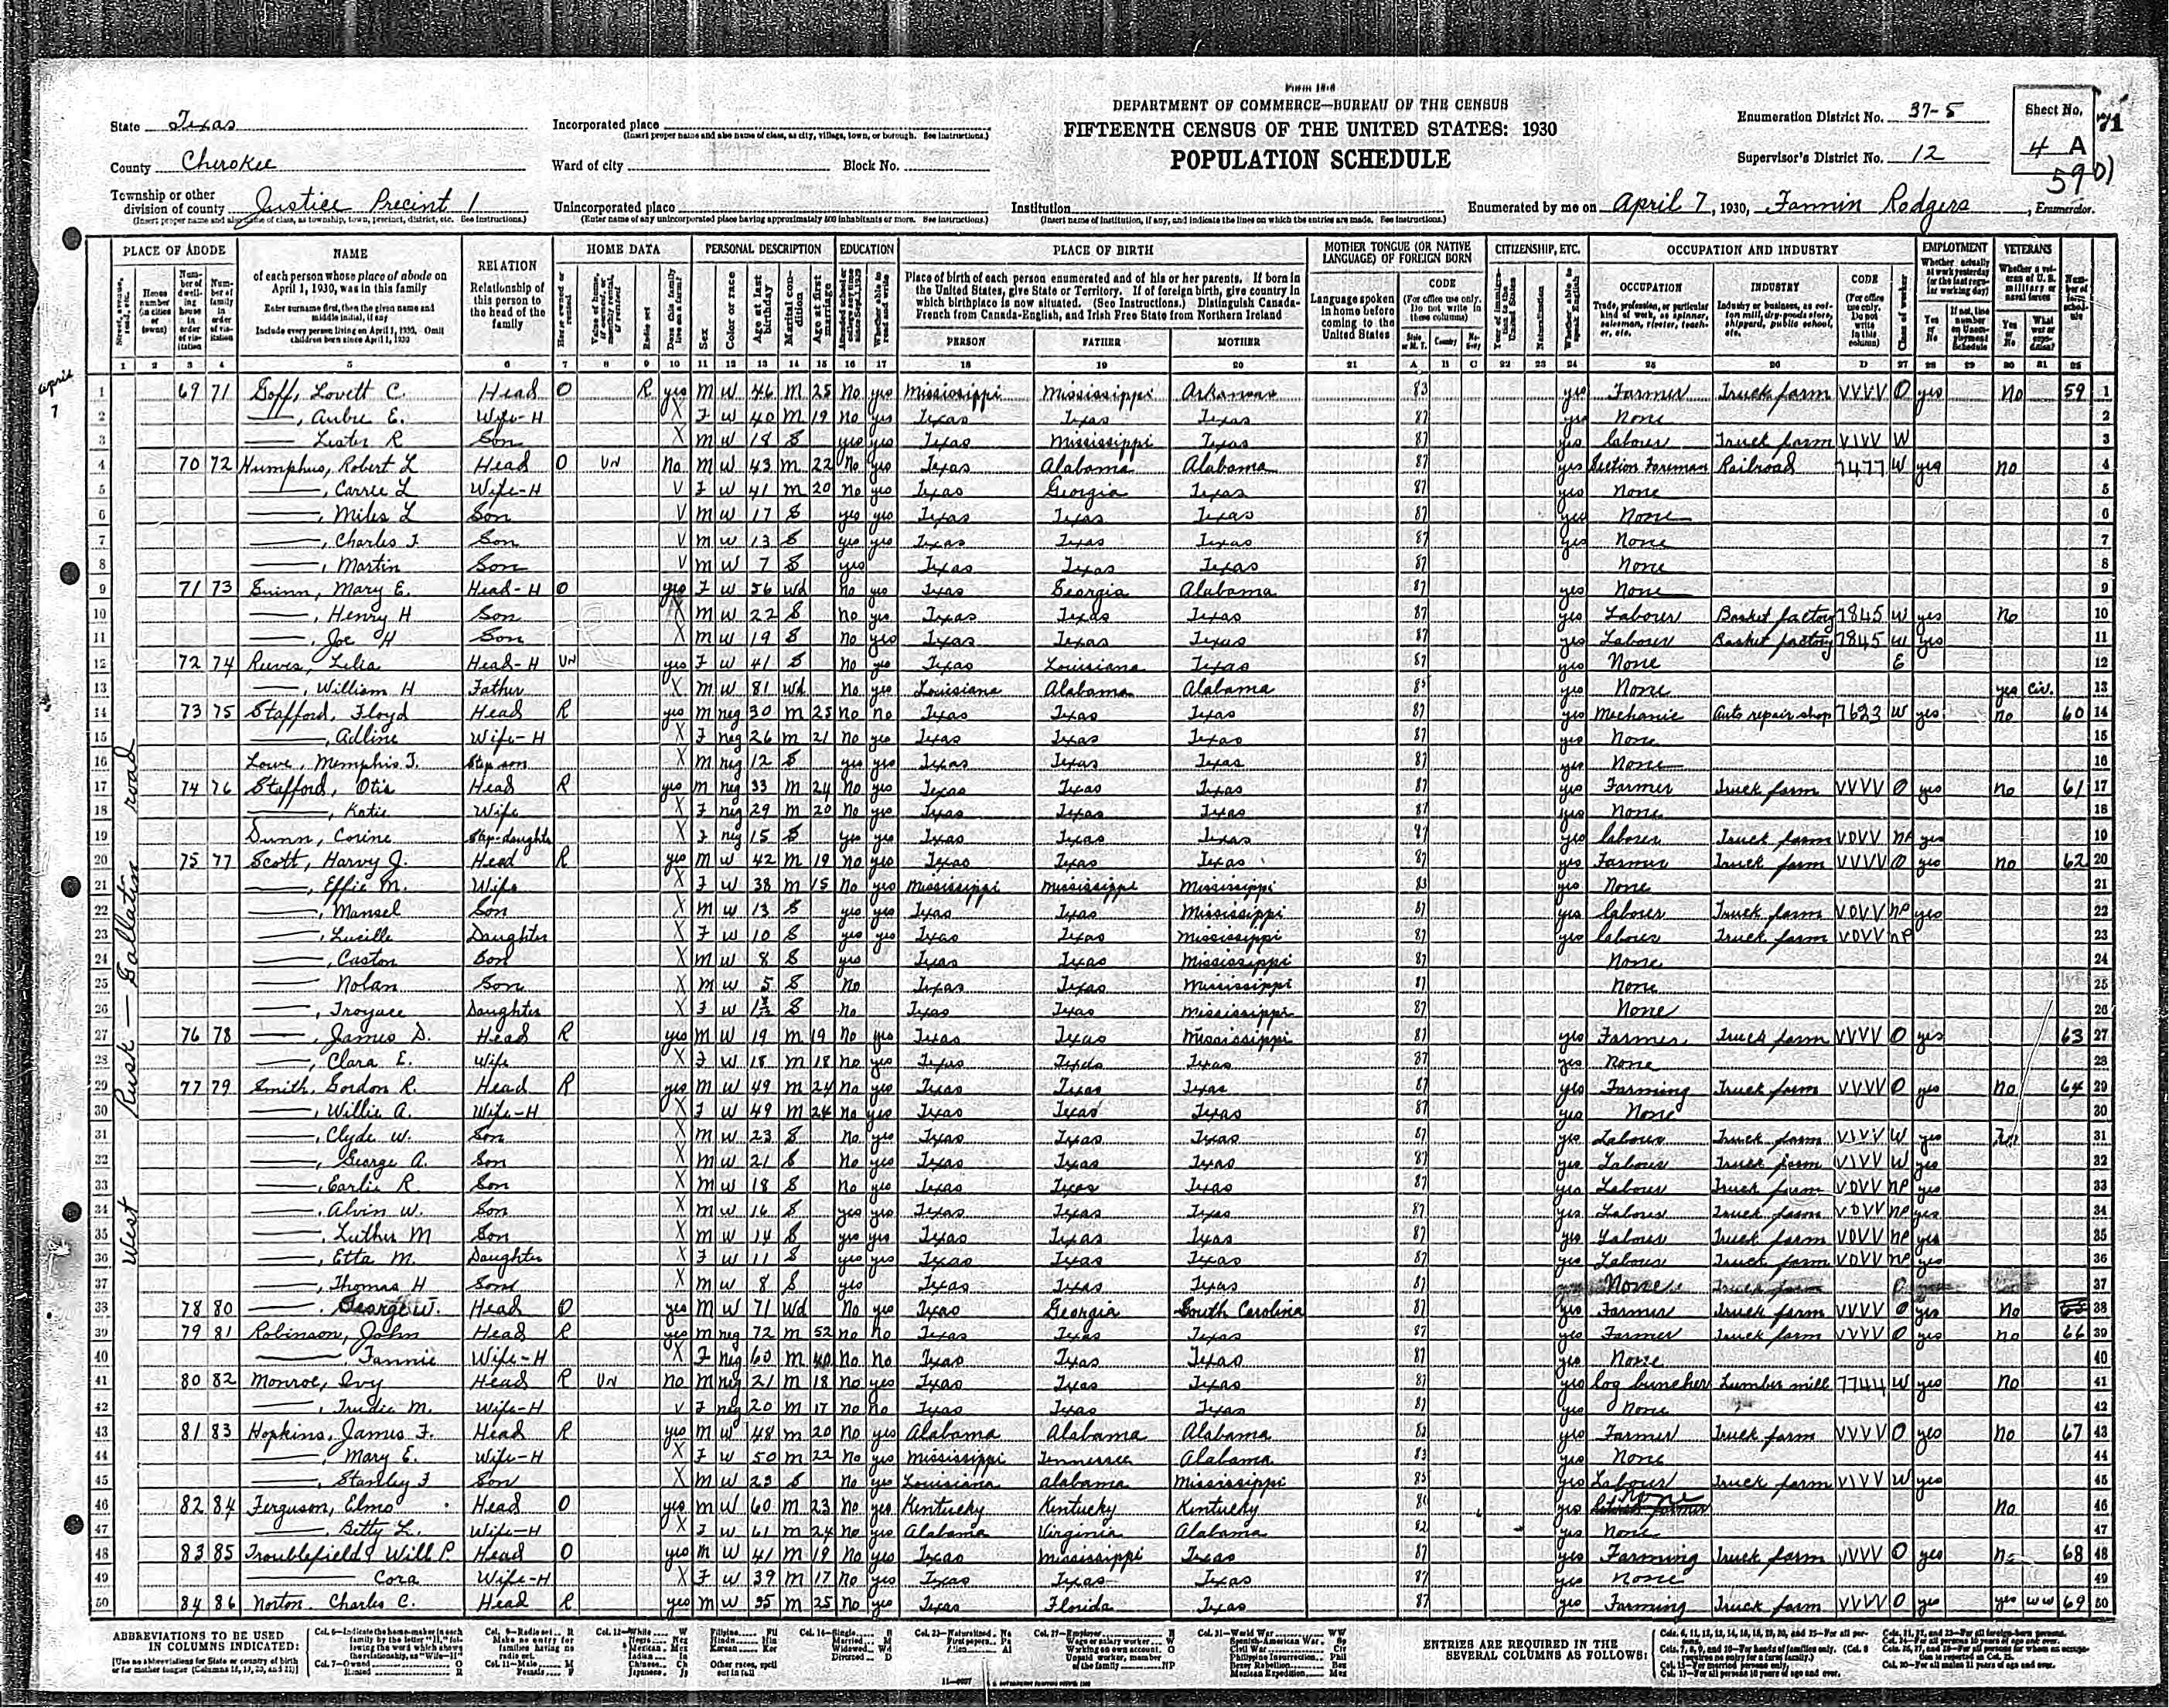 Form 15-6
DEPARTMENT OF COMMERCE—BUREAU OF THE CENSUS
FIFTEENTH CENSUS OF THE UNITED STATES: 1930
POPULATION SCHEDULE
State Texas
County Cherokee
Township or other division of county Justice Precint 1
Incorporated place
Ward of city Block No.
Unincorporated place
Institution
Enumeration District No. 37-5
Supervisor's District No. 12
Sheet No. 4 A
71
Enumerated by me on April 7, 1930, Fannin Rodgers, Enumerator.
PLACE OF ABODE NAME RELATION HOME DATA PERSONAL DESCRIPTION EDUCATION PLACE OF BIRTH MOTHER TONGUE (OR NATIVE LANGUAGE) OF FOREIGN BORN CITIZENSHIP, ETC. OCCUPATION AND INDUSTRY EMPLOYMENT VETERANS
of each person whose place of abode on April 1, 1930, was in this family
Enter surname first, then the given name and middle initial, if any
Include every person living on April 1, 1930. Omit children born since April 1, 1930
Relationship of this person to the head of the family
Place of birth of each person enumerated and of his or her parents. If born in the United States, give State or Territory. If of foreign birth, give country in which birthplace is now situated. (See Instructions.) Distinguish Canada-French from Canada-English, and Irish Free State from Northern Ireland
PERSON FATHER MOTHER
Language spoken in home before coming to the United States
CODE
OCCUPATION INDUSTRY CODE
April 7
West Rusk — Gallatin road
1 69 71 Goff, Lovett C. Head O R yes M W 46 M 25 No yes Mississippi Mississippi Arkansas 83 yes Farmer Truck farm VVVV O yes No 59 1
2 ——, Aubre E. Wife-H X F W 40 M 19 No yes Texas Texas Texas 87 yes None 2
3 —— Lister R Son X M W 18 S yes yes Texas Mississippi Texas 87 yes Labour Truck farm VIVV W 3
4 70 72 Humphus, Robert L Head O UN No M W 43 M 22 No yes Texas Alabama Alabama 87 yes Section Foreman Railroad 7477 W yes No 4
5 ——, Carree L Wife-H V F W 41 M 20 No yes Texas Georgia Texas 87 yes None 5
6 ——, Miles L Son V M W 17 S yes yes Texas Texas Texas 87 yes None 6
7 ——, Charles F. Son V M W 13 S yes yes Texas Texas Texas 87 yes None 7
8 ——, Martin Son V M W 7 S yes Texas Texas Texas 87 None 8
9 71 73 Guinn, Mary E. Head-H O yes F W 56 Wd No yes Texas Georgia Alabama 87 yes None 9
10 ——, Henry H Son X M W 22 S No yes Texas Texas Texas 87 yes Labour Basket factory 7845 W yes No 10
11 ——, Joe H Son X M W 19 S No yes Texas Texas Texas 87 yes Labour Basket factory 7845 W yes 11
12 72 74 Reeves, Lelia Head-H UN yes F W 41 S No yes Texas Louisiana Texas 87 yes None 6 12
13 ——, William H Father X M W 81 Wd No yes Louisiana Alabama Alabama 85 yes None yes Civ. 13
14 73 75 Stafford, Floyd Head R yes M neg 30 M 25 No No Texas Texas Texas 87 yes Mechanic Auto repair shop 7623 W yes No 60 14
15 ——, Adline Wife-H X F neg 26 M 21 No yes Texas Texas Texas 87 yes None 15
16 Lowe, Memphis F. Step son X M neg 12 S yes yes Texas Texas Texas 87 yes None 16
17 74 76 Stafford, Otis Head R yes M neg 33 M 24 No yes Texas Texas Texas 87 yes Farmer Truck farm VVVV O yes No 61 17
18 ——, Katie Wife X F neg 29 M 20 No yes Texas Texas Texas 87 yes None 18
19 Dunn, Corine Step-daughter X F neg 15 S yes yes Texas Texas Texas 87 yes Labour Truck farm VOVV NP yes 19
20 75 77 Scott, Harvy J. Head R yes M W 42 M 19 No yes Texas Texas Texas 87 yes Farmer Truck farm VVVV O yes No 62 20
21 ——, Effie M. Wife X F W 38 M 15 No yes Mississippi Mississippi Mississippi 83 yes None 21
22 ——, Mansel Son X M W 13 S yes yes Texas Texas Mississippi 87 yes Labour Truck farm VOVV NP yes 22
23 ——, Lucille Daughter X F W 10 S yes yes Texas Texas Mississippi 87 yes Labour Truck farm VOVV NP 23
24 ——, Caston Son X M W 8 S yes Texas Texas Mississippi 87 None 24
25 —— Nolan Son X M W 5 S No Texas Texas Mississippi 87 None 25
26 ——, Troyace Daughter X F W S No Texas Texas Mississippi 87 None 26
27 76 78 ——, James D. Head R yes M W 19 M 19 No yes Texas Texas Mississippi 87 yes Farmer Truck farm VVVV O yes 63 27
28 ——, Clara E. Wife X F W 18 M 18 No yes Texas Texas Texas 87 yes None 28
29 77 79 Smith, Gordon R. Head R yes M W 49 M 24 No yes Texas Texas Texas 87 yes Farming Truck farm VVVV O yes No 64 29
30 ——, Willie A. Wife-H X F W 49 M 24 No yes Texas Texas Texas 87 yes None 30
31 ——, Clyde W. Son X M W 23 S No yes Texas Texas Texas 87 yes Labour Truck farm VIVV W yes 31
32 ——, George A. Son X M W 21 S No yes Texas Texas Texas 87 yes Labour Truck farm VIVV W yes 32
33 ——, Earlie R. Son X M W 18 S No yes Texas Texas Texas 87 yes Labour Truck farm VOVV NP yes 33
34 ——, Alvin W. Son X M W 16 S yes yes Texas Texas Texas 87 yes Labour Truck farm VOVV NP yes 34
35 ——, Luther M Son X M W 14 S yes yes Texas Texas Texas 87 yes Labour Truck farm VOVV NP yes 35
36 ——, Etta M. Daughter X F W 11 S yes yes Texas Texas Texas 87 yes Labour Truck farm VOVV NP yes 36
37 ——, Thomas H Son X M W 8 S yes Texas Texas Texas 87 None 37
38 78 80 ——, George W. Head O yes M W 71 Wd No yes Texas Georgia South Carolina 87 yes Farmer Truck farm VVVV O yes No 38
39 79 81 Robinson, John Head R yes M neg 72 M 52 No No Texas Texas Texas 87 yes Farmer Truck farm VVVV O yes No 66 39
40 ——, Fannie Wife-H X F neg 60 M 40 No No Texas Texas Texas 87 yes None 40
41 80 82 Monroe, Ivy Head R UN No M neg 21 M 18 No yes Texas Texas Texas 87 yes Log buncher Lumber mill 7744 W yes No 41
42 ——, Trudie M. Wife-H V F neg 20 M 17 No No Texas Texas Texas 87 yes None 42
43 81 83 Hopkins, James F. Head R yes M W 48 M 20 No yes Alabama Alabama Alabama 82 yes Farmer Truck farm VVVV O yes No 67 43
44 ——, Mary E. Wife-H X F W 50 M 22 No yes Mississippi Tennessee Alabama 83 yes None 44
45 ——, Stanley F Son X M W 23 S No yes Louisiana Alabama Mississippi 85 yes Labour Truck farm VIVV W yes 45
46 82 84 Ferguson, Elmo Head O yes M W 60 M 23 No yes Kentucky Kentucky Kentucky yes None No 46
47 ——, Betty L. Wife-H X F W 61 M 24 No yes Alabama Virginia Alabama 82 yes None 47
48 83 85 Troublefield, Will P. Head O yes M W 41 M 19 No yes Texas Mississippi Texas 87 yes Farming Truck farm VVVV O yes No 68 48
49 —— Cora Wife-H X F W 39 M 17 No yes Texas Texas Texas 87 yes None 49
50 84 86 Norton, Charles C. Head R yes M W 35 M 25 No yes Texas Florida Texas 87 yes Farming Truck farm VVVV O yes yes WW 69 50
ABBREVIATIONS TO BE USED IN COLUMNS INDICATED:
ENTRIES ARE REQUIRED IN THE SEVERAL COLUMNS AS FOLLOWS: